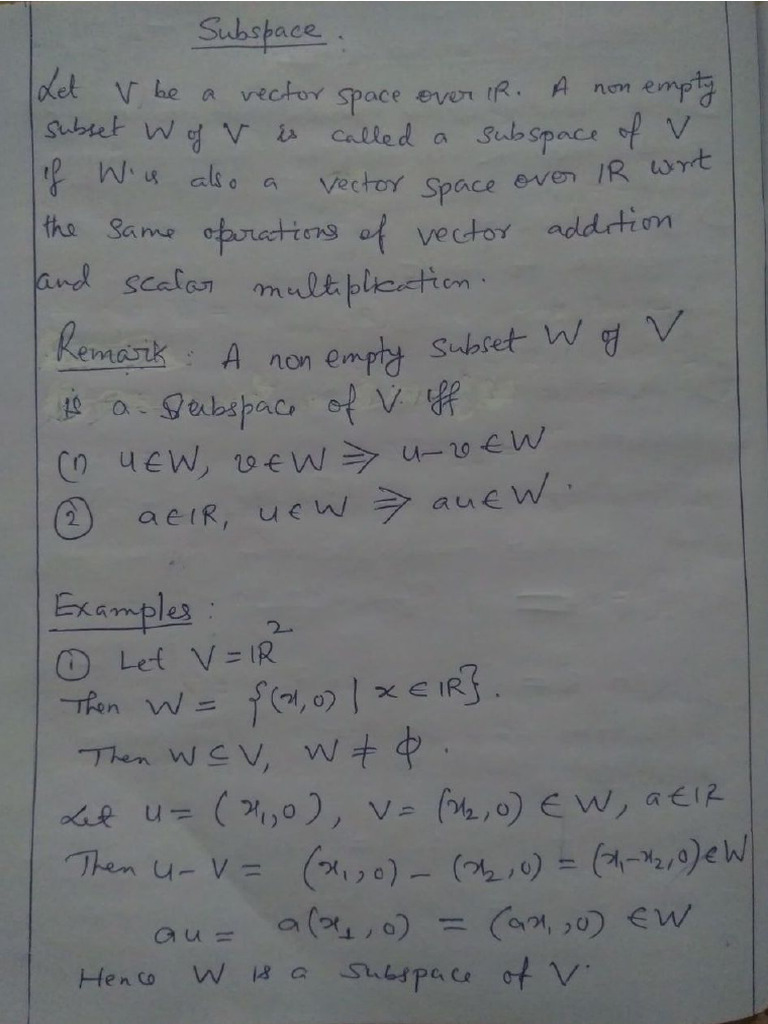 Subspace.
Let V be a vector space over IR. A non empty
subset W of V is called a subspace of V
if W is also a vector space over IR wrt
the same operations of vector addition
and scalar multiplication.
Remark: A non empty subset W of V
is a subspace of V iff
(1) u∈W, v∈W ⇒ u-v∈W
② a∈IR, u∈W ⇒ au∈W.
Examples:
① Let V=IR²
Then W = {(x,0) | x∈IR}.
Then W⊆V, W≠ϕ.
Let u=(x₁,0), v=(x₂,0) ∈W, a∈IR
Then u-v = (x₁,0)-(x₂,0) = (x₁-x₂,0)∈W
au = a(x₁,0) = (ax₁,0) ∈W
Hence W is a subspace of V.